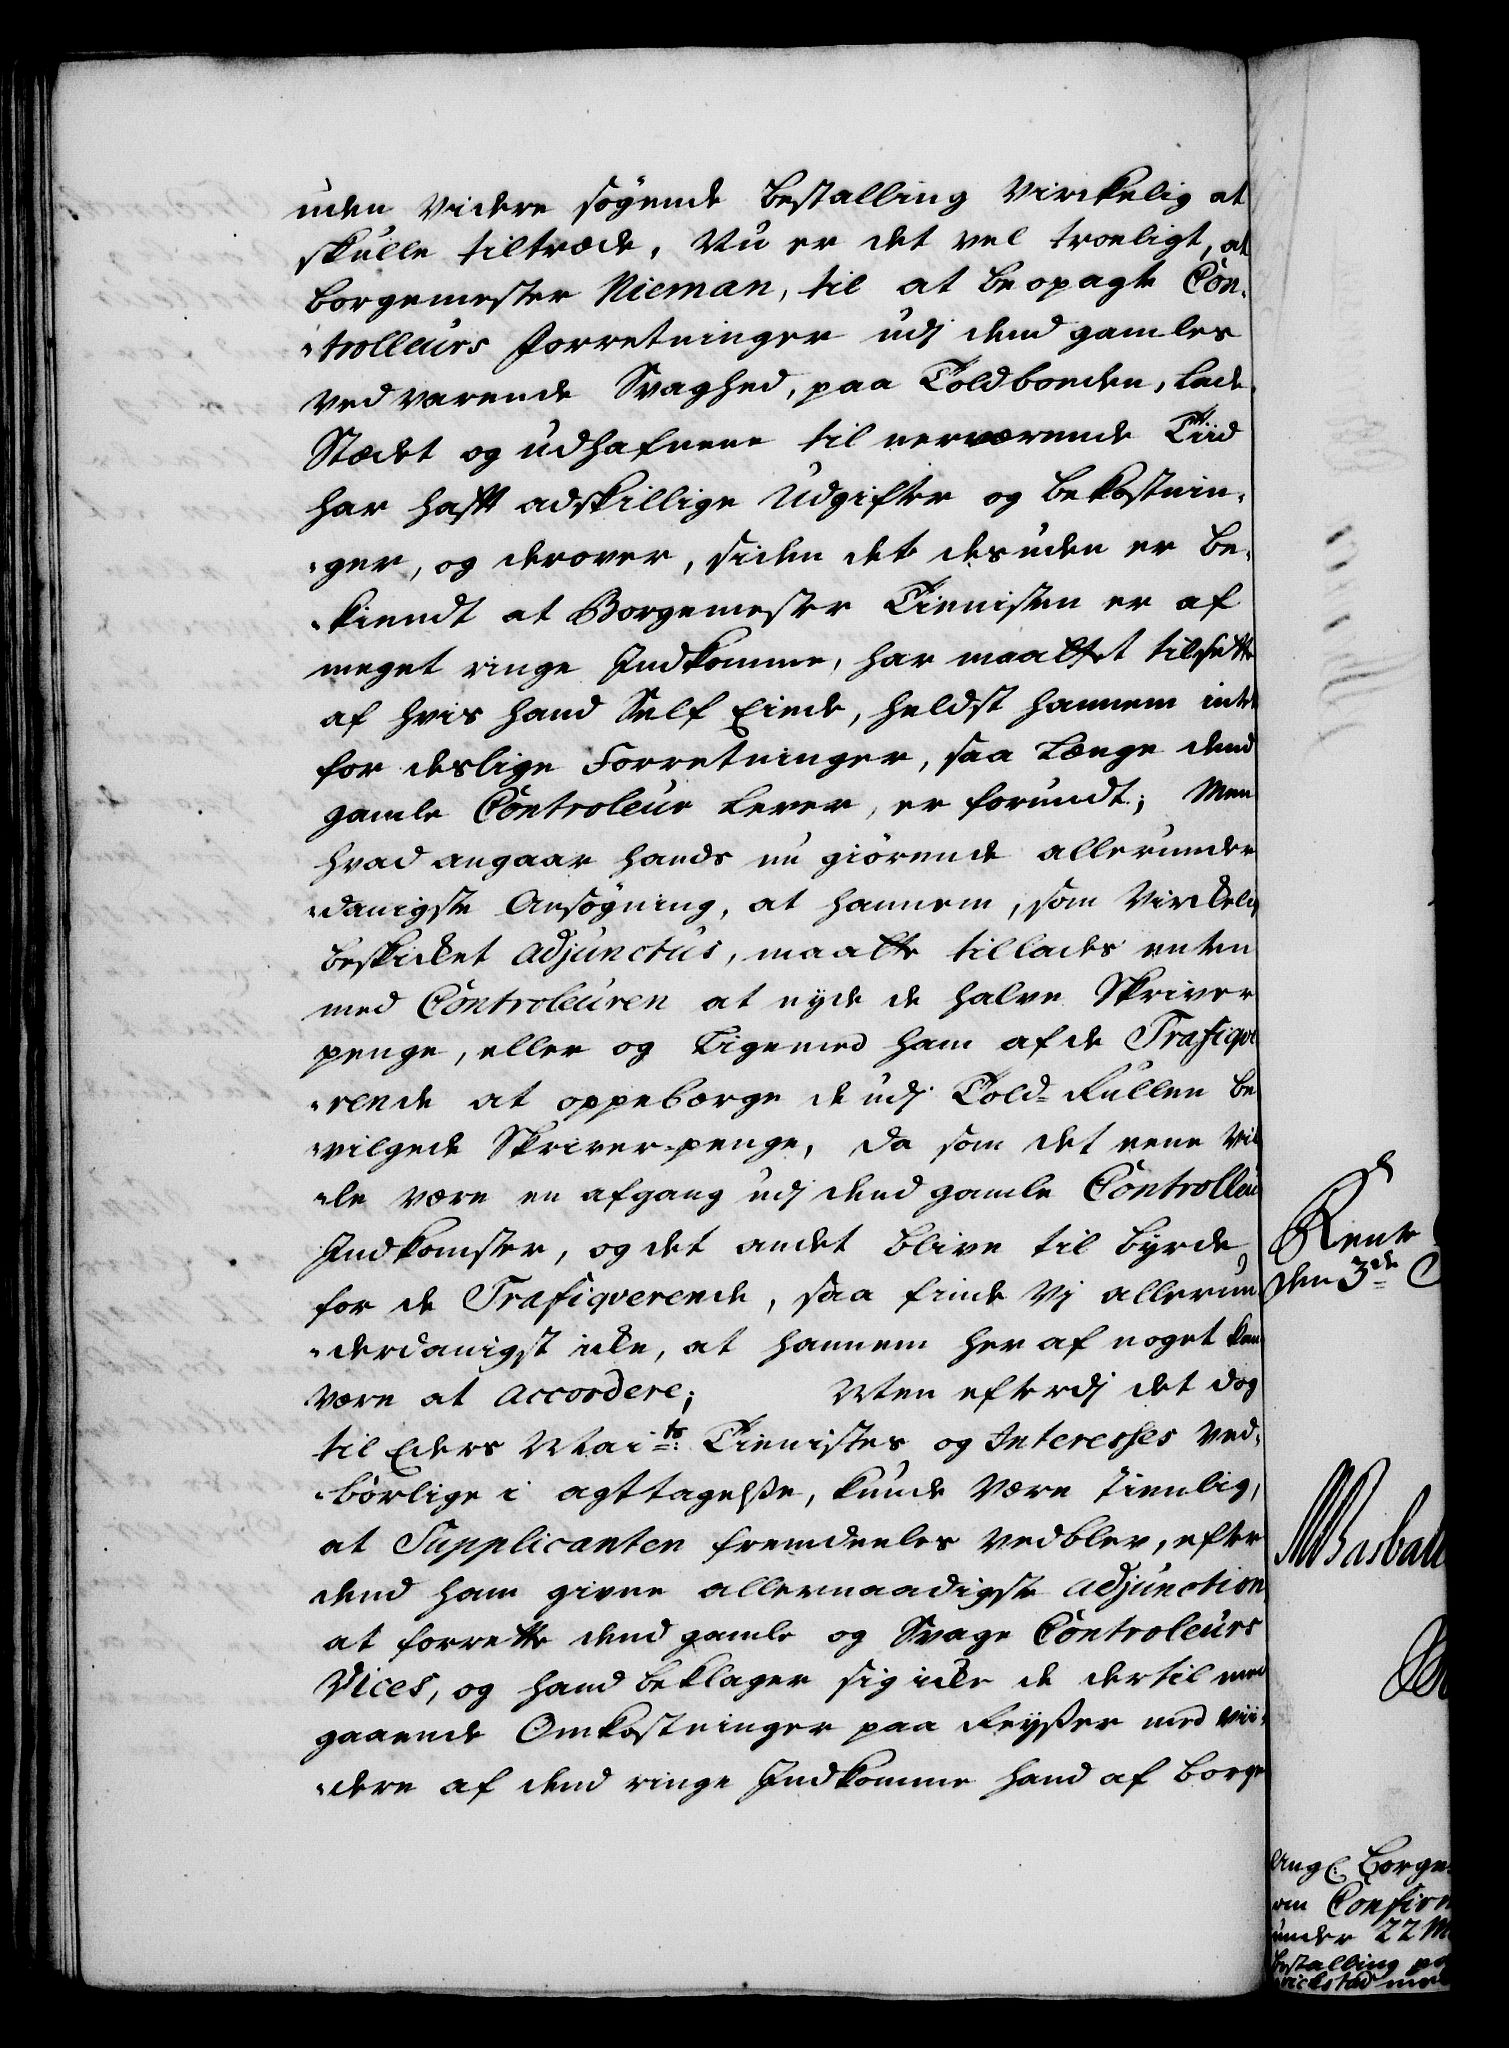 uden videre søgende Bestalling virkelig at
skulle tiltræde. Nu er det vel troeligt, at
Borgemester Nieman, til at beopagte Con¬
¬trolleurs Forretninger udj dend gamles
vedvarende Svaghed, paa Toldboeden, Lade¬
Stædet og udhafnene til nerværende Tiid
har hafft adskillige Udgifter og bekostnin¬
¬ger, og derover, siden det desuden er be¬
¬kiendt at Borgemester Tienisten er af
meget ringe Indkomme, har maattet tilsette
af hvis hand Self Eiede, heldst hannem intet
for deslige Forretninger, saa Længe dend
gamle Controleur Lever, er forundt; Men
hvad angaar hands nu giørende allerunder
¬danigste Ansøgning, at hannem, som Virckelig
beskicket Adjunctus, maatte tillades enten
med Controleuren at nyde de halve Skriver
penge, eller og Ligemed ham af de Trafiqve
¬rende at oppebørge de udj Told-Rullen be
¬vilgede Skriver-penge, da som det eene vil
¬le være en afgang udj dend gamle Controlleurs
Indkomster, og det andet blive til byrde
for de Trafiqverende, saa finde Vj allerun
¬derdanigst icke, at hannem her af noget kand
være at accordere; Men efterdj det dog
til Eders Maits: Tienistes og Interesses ved¬
¬børlige i agttagelsse, kunde være tienlig,
at Supplicanten fremdeeles vedblev, efter
dend ham givne allernaadigste Adjunction
at forrette dend gamle og Svage Controleurs
Vices, og hand beklager sig icke de dertil med
gaaende Omkostninger paa Reysser med vii¬
¬dere af dend ringe Indkomme hand af borge
Rente
den 3de
Ang: Borge¬
om Confirm
under 22 M
bestalling paa